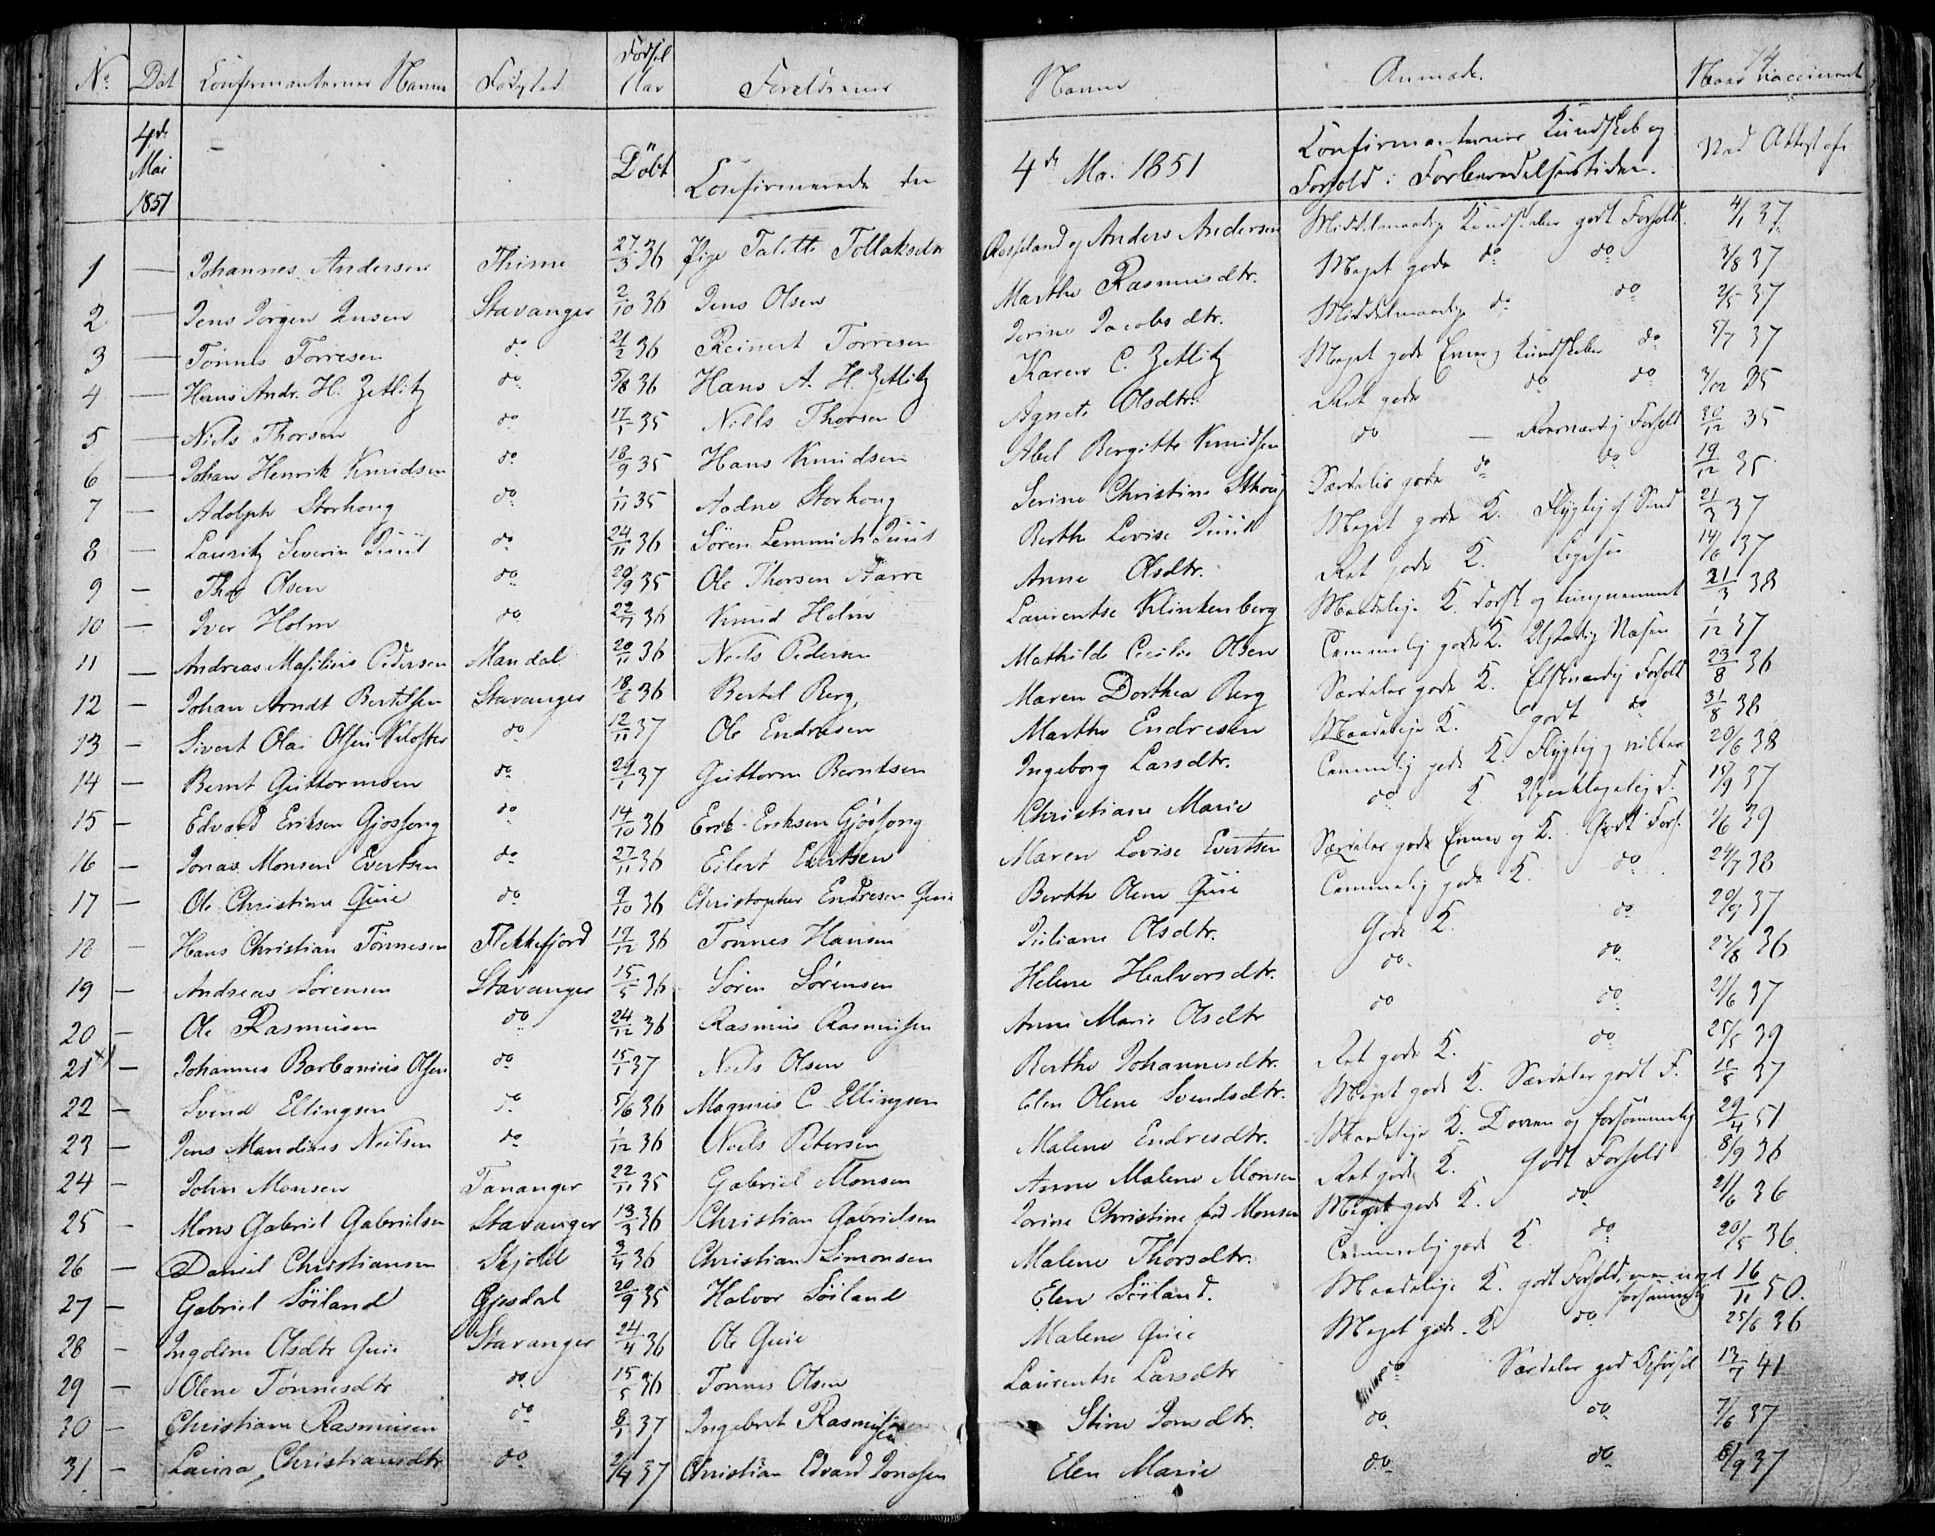 No Dat Confirmanternes Navne Födested Födsel Aar Forældrenes Navne Anmærk. Naar vaccineret
74
4de Mai 1851 Döbt Confirmerede den 4de Mai 1851 Confirmanternes Kundskab og Forhold i Forberedelsestiden.
1 — Johannes Andersen Thime 27/3 36 Pige Talette Tollaksdtr Rosseland og Anders Andersen Middelmaadige Kundskaber godt Forhold 4/1 37
2 — Jens Jörgen Jensen Stavanger 2/10 36 Jens Olsen Marthe Rasmusdtr. Meget gode do do 3/8 37
3 — Tönnes Torresen do 21/2 36 Reinert Torresen Jacobsdtr. Middelmaadige do do 2/5 37
4 — Hans Andr. H. Zetlitz do 5/8 36 Hans A. H. Zetlitz Karen C. Zetlitz Meget gode Evner, Kundskaber do 5/7 37
5 — Niels Thorsen do 17/1 35 Niels Thorsen Agnete Olsdtr. Ret gode do do 3/12 35
6 — Johan Henrik Knudsen do 18/9 35 Hans Knudsen Abel Bergitte Knudsen do — Forhold 30/12 35
7 — Adolph Storhoug do 1/11 35 Aadne Storhoug Serine Christine Særdeles gode do do 19/12 35
8 — Lauritz Severin Juul do 24/11 36 Sören Lemmich Juul Berthe Lovise Juul Meget gode K. Flygtig af Sind 21/3 37
9 — Thor Olsen do 20/9 35 Ole Thorsen Aarre Anne Olsdtr. Ret gode K. Ligesaa 14/6 37
10 — Iver Holm do 22/7 36 Knud Holm Laurentse Klinkenberg Maadelige K. dorsk og 21/3 38
11 — Andreas Pedersen Mandal 20/11 36 Niels Pedersen Mathilde Cecilie Olsen Temmelig gode K. 1/12 37
12 — Johan Arndt Bertelsen Stavanger 18/6 36 Bertel Berg Maren Dorthea Berg Særdeles gode K. Elskværdig Forhold 23/8 36
13 — Sivert Olai Olsen Kloster do 12/11 37 Ole Endresen Marthe Endresen Maadelige K. godt do 31/8 38
14 — Bernt Guttormsen do 29/1 37 Guttorm Berntsen Ingeborg Larsdtr. Temmelig gode K. Flygtig 20/6 38
15 — Edvard Eriksen Gjösfong do 14/10 36 Erik Eriksen Gjösfong Christiane Marie do K. Upaaklagelig F. 15/9 37
16 — Jonas Monsen Evertsen do 27/11 36 Eilert Evertsen Maren Lovise Evertsen Særdeles gode Evner og K. Godt Forh. 1/6 39
17 — Ole Christian Qvie do 9/10 36 Christopher Endresen Qvie Berthe Olene Qvie Temmelig gode K. do 24/7 38
18 — Hans Christian Tönnesen Flekkefjord 19/12 36 Tönnes Hansen Juliane Olsdtr. Gode K. do 20/9 37
19 — Andreas Sörensen Stavanger 15/5 36 Sören Sörensen Helene Halvorsdtr. do do 27/8 36
20 — Ole Rasmusen do 24/12 36 Rasmus Rasmussen Anne Marie Olsdtr do do 21/6 37
21 — Johannes Barbanius Olsen do 15/1 37 Niels Olsen Berthe Johannesdtr. Ret gode K. do 25/5 39
22 — Svend Ellingsen do 5/6 36 Magnus C. Ellingsen Elen Olene Svendsdtr. Meget gode K. Særdeles godt F. 10/5 37
23 — Jens Mandius Neilsen do 1/12 36 Niels Petersen Malene Endresdtr. Maadelige K. Doven og forsömmelig 29/4 51
24 — John Monsen Tananger 22/11 35 Gabriel Monsen Anne Malene Monsen Ret gode K. Godt Forhold 8/9 36
25 — Mons Gabriel Gabrielsen Stavanger 13/3 36 Christian Gabrielsen Jorine Christine föd Monsen Meget gode K. do 21/6 36
26 — Daniel Christiansen Skjold 3/4 36 Christian Simonsen Malene Thorsdtr. Temmelig gode K. do 20/5 36.
27 — Gabriel Söiland Gjesdal 20/9 35 Halvor Söiland Elen Söiland. Maadelige K. godt Forhold, men noget forsömmelig 16/11 50.
28 — Ingoline Olsdtr Qvie Stavanger 24/4 36 Ole Qvie Malene Qvie Meget gode K. do 25/6 36
29 — Olene Tönnesdtr do 15/5 36 Tonnes Olsen Laurentse Larsdtr do Særdeles god Opförsel 13/7 41
30 — Christiane Rasmusen do 9/1 37 Ingebret Rasmussen Stine Jonsdtr. do do 7/6 37
31 — Laura Christiansdtr do 2/4 37 Christian Edvard Jonassen Elen Marie do do 8/9 37